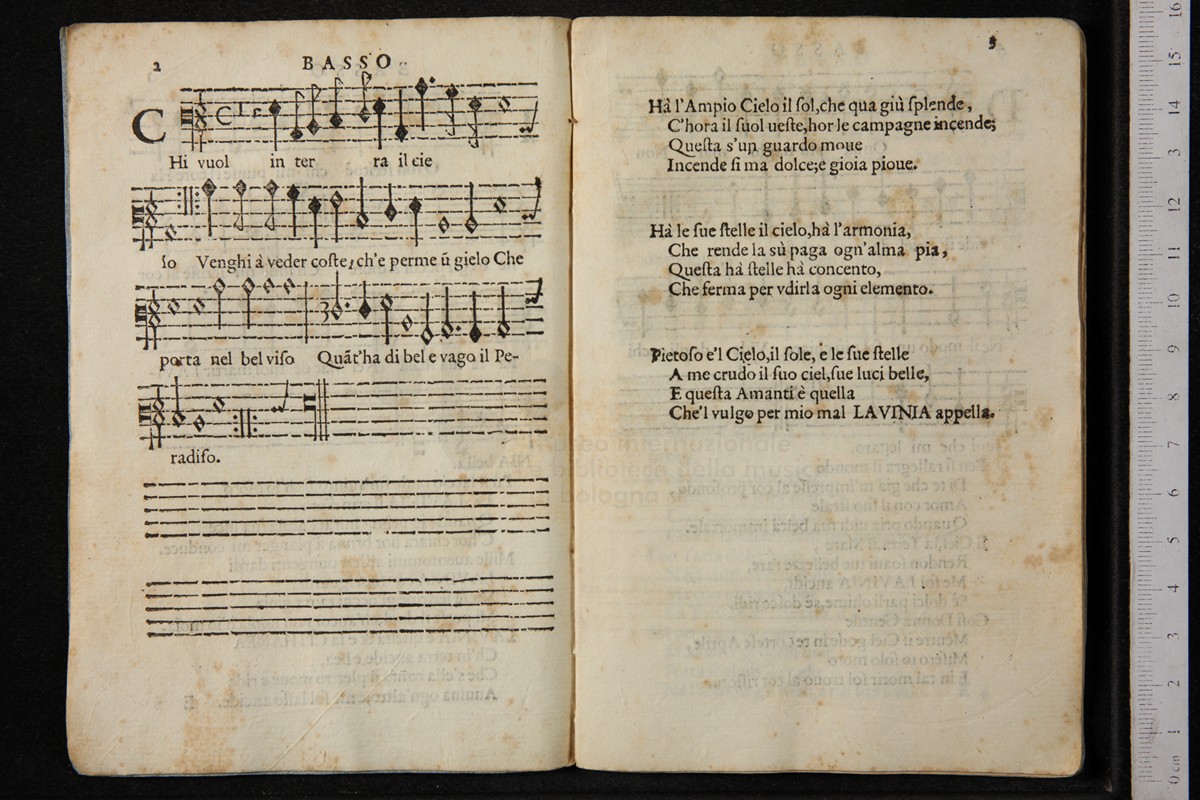 2
BASSO
C
Hi vuol in ter ra il cie
lo Venghi à veder coſte, ch'e perme ũ gielo Che
porta nel bel viſo Quãt'ha di bel e vago il Pe-
radiſo.
3
Hà l'Ampio Cielo il ſol,che qua giù ſplende,
C'hora il ſuol ueſte,hor le campagne incende;
Queſta s'un guardo moue
Incende ſi ma dolce;e gioia pioue.
Hà le ſue ſtelle il cielo,hà l'armonia,
Che rende la sù paga ogn'alma pia,
Queſta hà ſtelle hà concento,
Che ferma per vdirla ogni elemento.
Pietoſo e'l Cielo,il ſole, e le ſue ſtelle
A me crudo il ſuo ciel,ſue luci belle,
E queſta Amanti è quella
Che'l vulgo per mio mal LAVINIA appella.
museo internazionale
e biblioteca della musica
bologna
0 cm 1 2 3 4 5 6 7 8 9 10 11 12 13 14 15 16